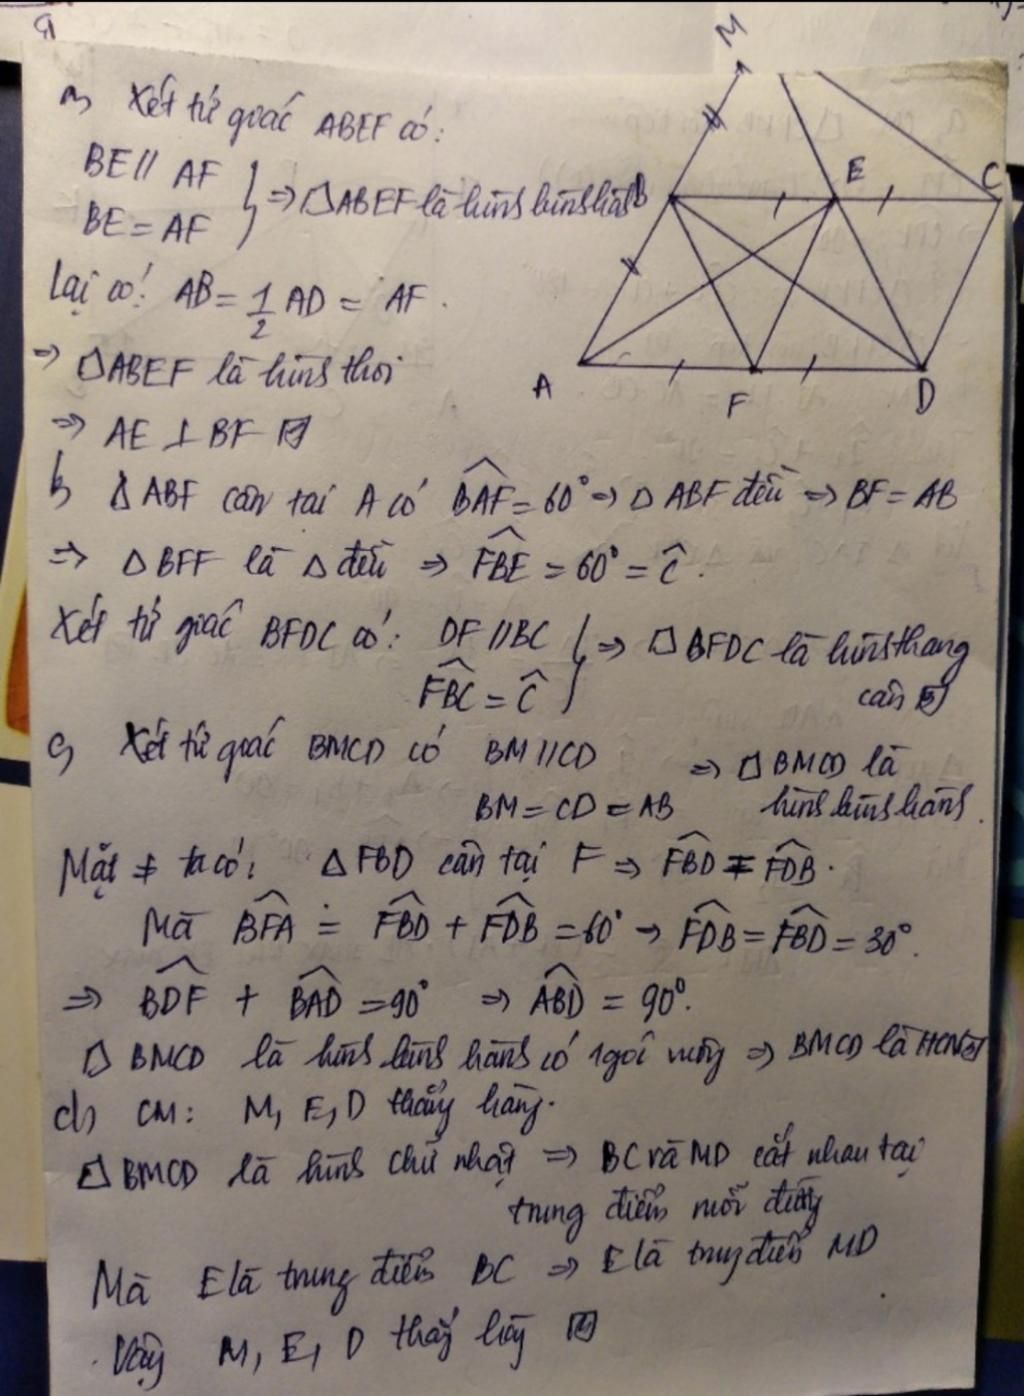 a) Xét tứ giác ABEF có:
BE // AF
BE = AF
⇒ ▱ABEF là hình bình hành
Lại có: AB = 1/2 AD = AF.
⇒ ▱ABEF là hình thoi
⇒ AE ⊥ BF
M
B
E
C
A
F
D
b) Δ ABF cân tại A có BAF = 60° ⇒ Δ ABF đều ⇒ BF = AB
⇒ Δ BFF là Δ đều ⇒ FBE = 60° = C.
Xét tứ giác BFDC có: DF // BC
FBC = C
⇒ ▱ BFDC là hình thang
cân
c) Xét tứ giác BMCD có BM // CD
BM = CD = AB
⇒ ▱ BMCD là
hình bình hành.
Mặt ≠ ta có: Δ FBD cân tại F ⇒ FBD = FDB.
Mà BFA = FBD + FDB = 60° → FDB = FBD = 30°.
⇒ BDF + BAD = 90° ⇒ ABD = 90°.
▱ BMCD là hình bình hành có 1 góc vuông ⇒ BMCD là HCN
d) CM: M, E, D thẳng hàng.
▱ BMCD là hình chữ nhật ⇒ BC và MD cắt nhau tại
trung điểm mỗi đường
Mà E là trung điểm BC ⇒ E là trung điểm MD
Vậy M, E, D thẳng hàng